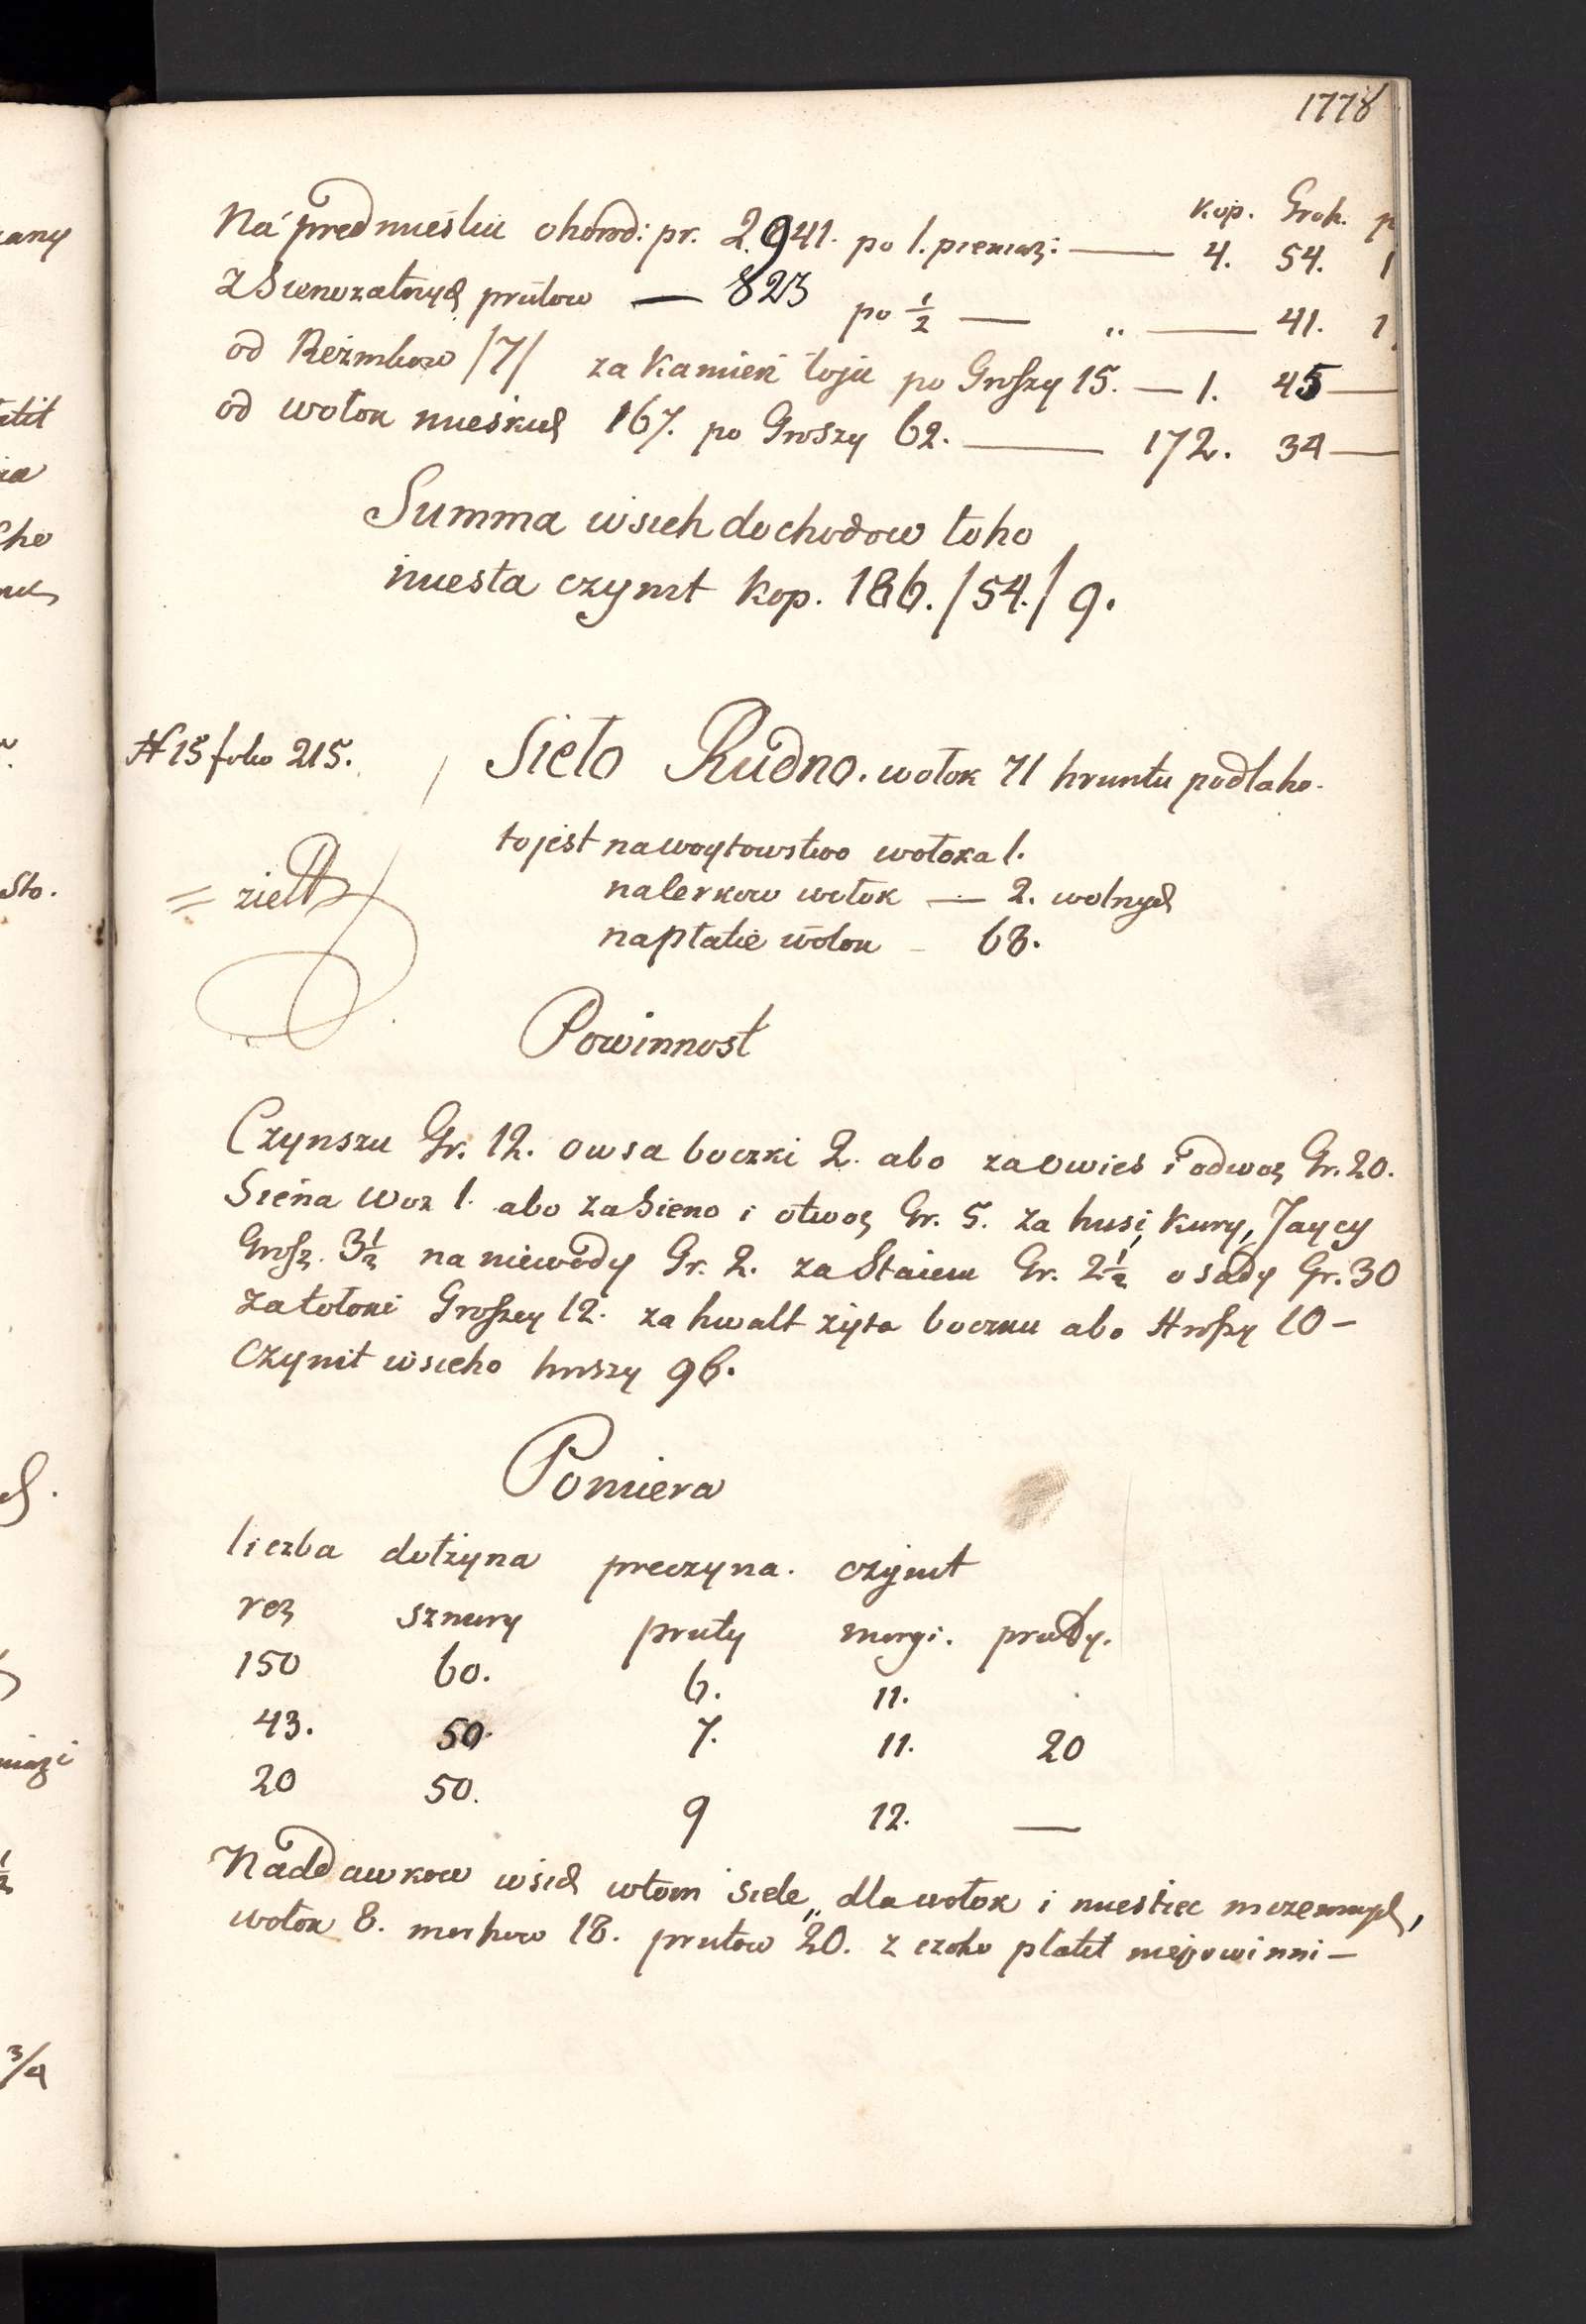 1778
Kop. Groh. p
Na predmiesciu ohorod: pr. 2.941. po 1. pieniaz: — 4. 54. 1
Z Sienozatnych prutow — 823 po ½ — „ — 41. 1
od Reznikow /7/ za Kamień łoju po Groszy 15. — 1. 45 —
od wołok mieskich 167. po Groszy 62. — 172. 34 —
Summa wsich dochodow toho
miesta czynit Kop. 186./54./9.
N 15 folio 215.
Sieło Rudno. wołok 71 hruntu podłaho.
to jest na woytowstwo wołoka 1.
na Ławnikow wołok — 2. wolnych
na płatie wołok — 68.
Powinnost
Czynszu Gr. 12. owsa boczki 2. abo za owies i odwoz Gr. 20.
Siena Woz 1. abo za Sieno i otwoz Gr. 5. za husi, Kury, Jaycy
Grosz. 3½ na niewody Gr. 2. za Staciu Gr. 2½ osady Gr. 30
za tołoki Groszey 12. za hwalt żyta boczku abo Hroszy 10 —
Czynit wsieho hroszy 96.
Pomiera
liczba dołżyna preczyna. czynit
rez sznury pruty morgi. pruty.
150 60. 6. 11.
43. 50. 7. 11. 20
20 50. 9 12. —
Naddawkow wsich w tom Siele„ dla wołok i miestec niezemnych,
wołok 8. morhow 18. prutow 20. z czoho płatit nie powinni —
any
Sto.
3/4